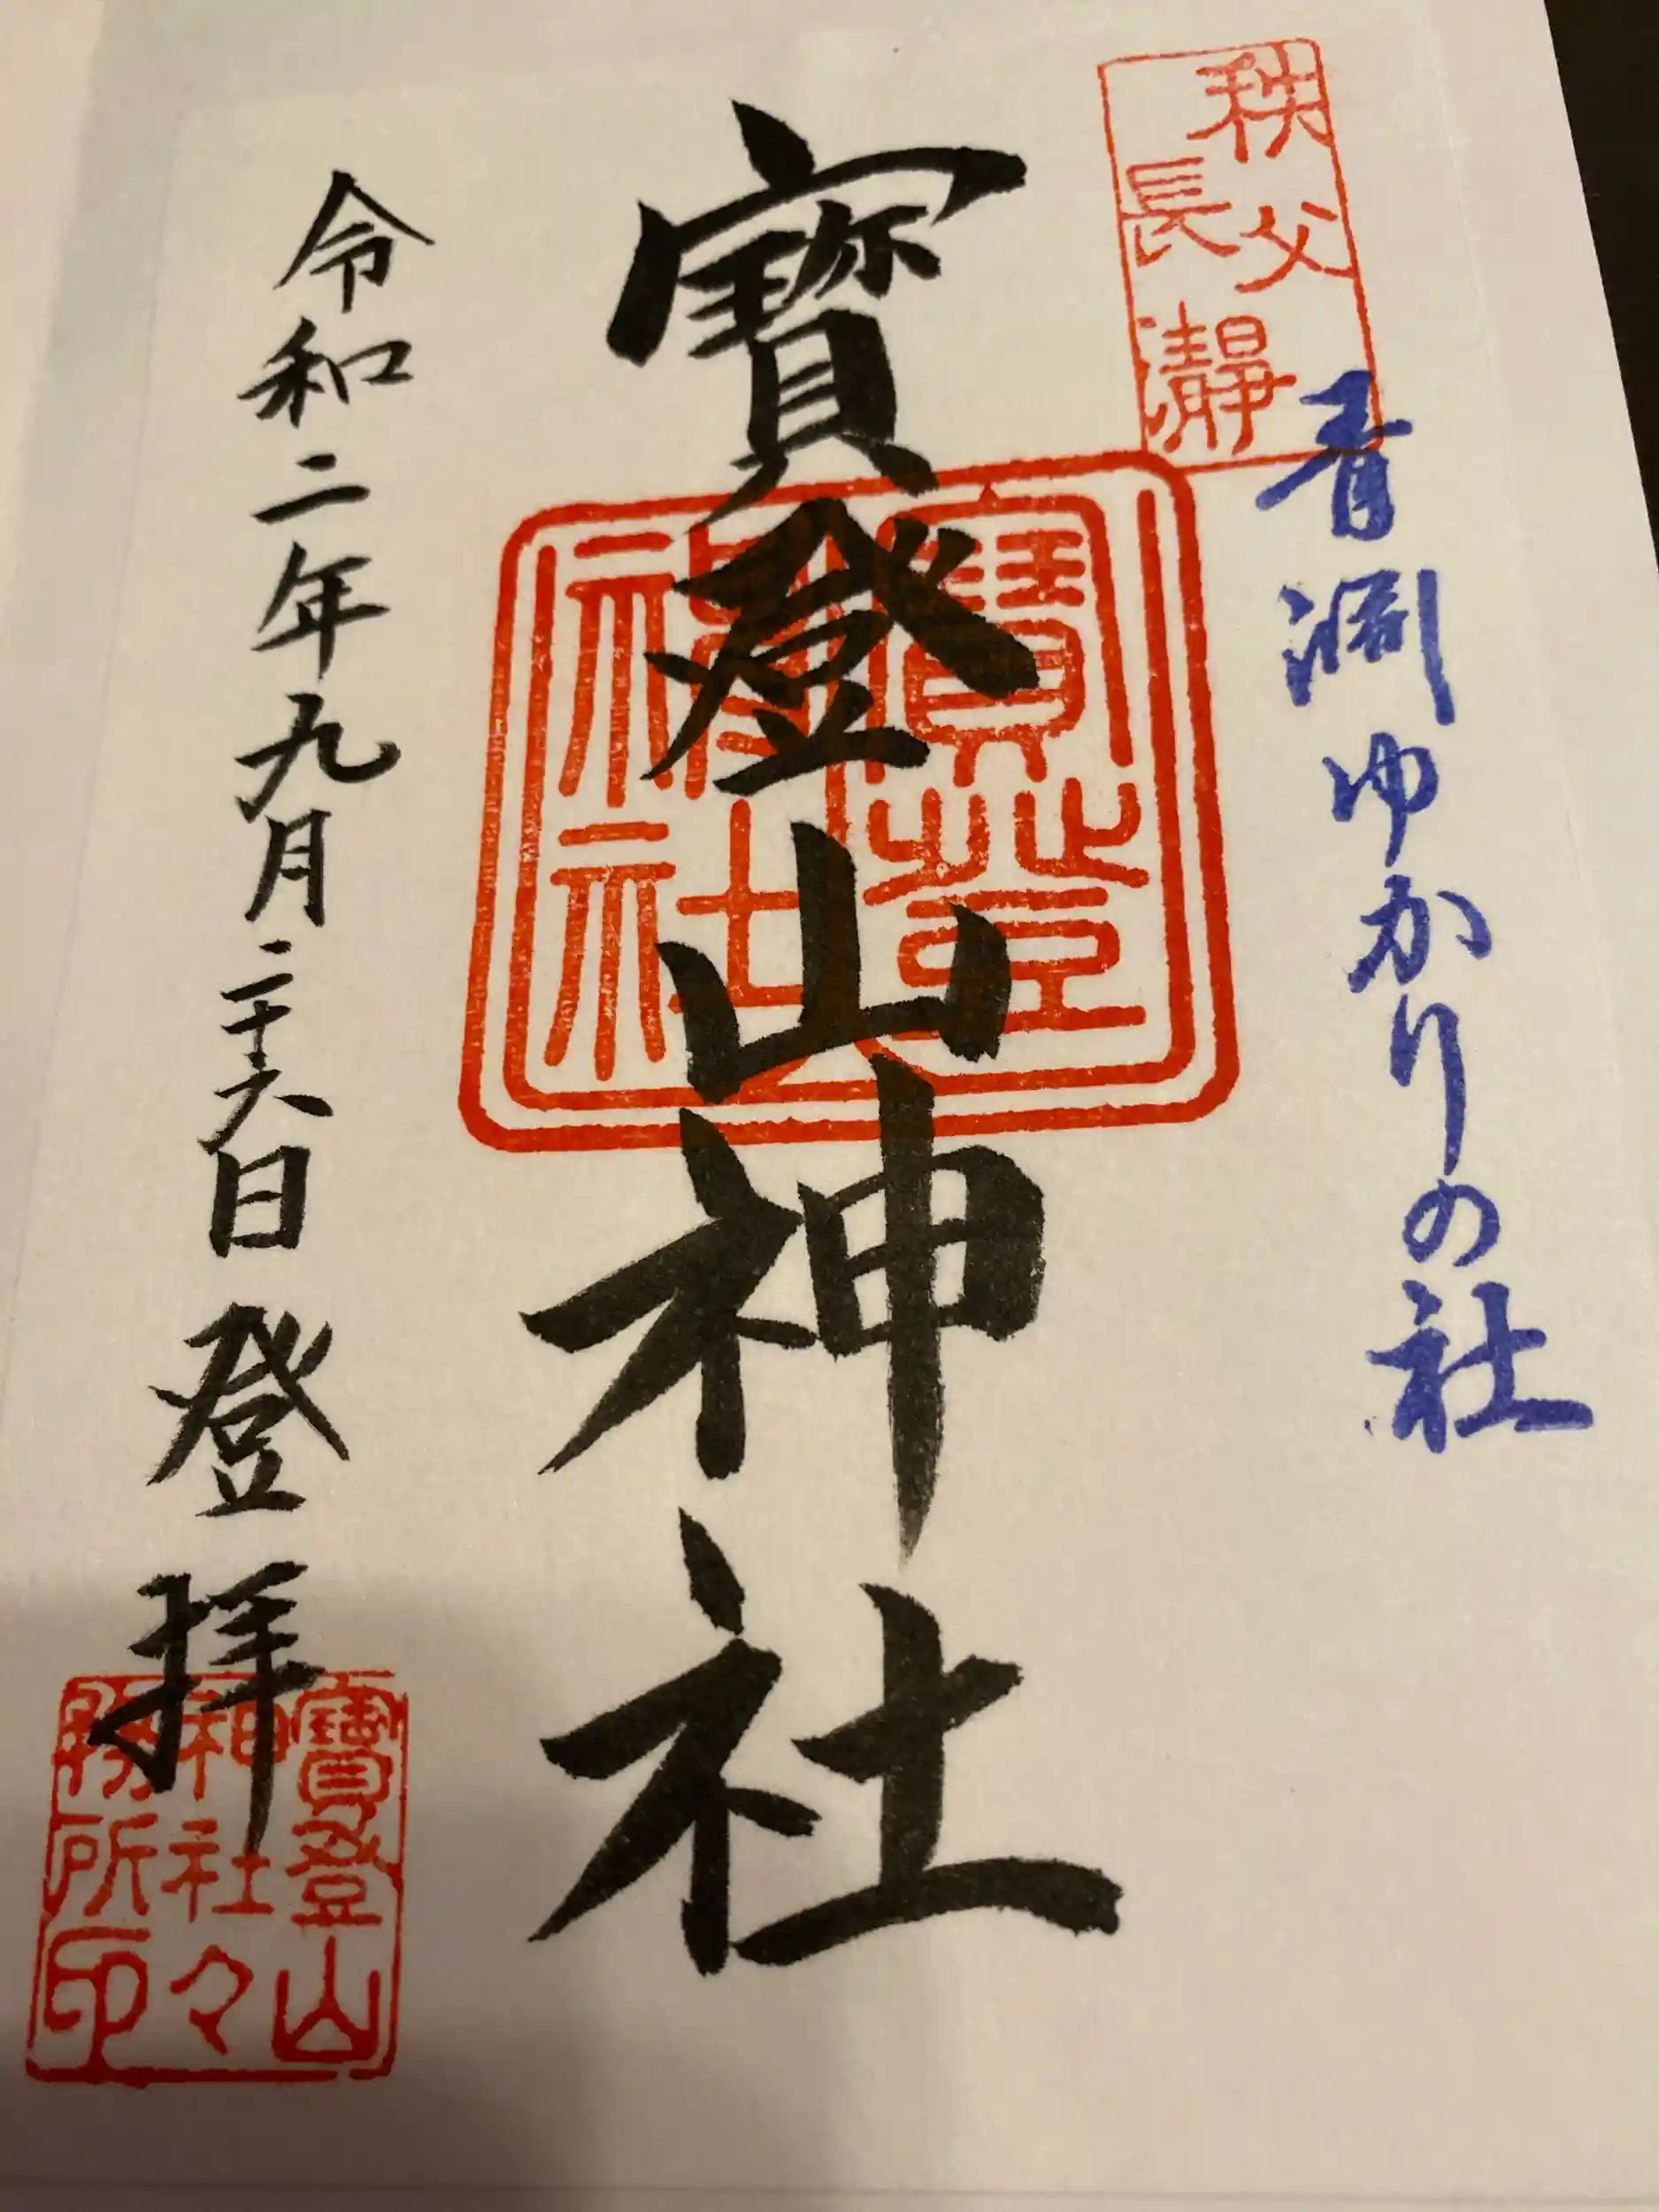 秩父
長瀞
青渕ゆかりの社
寶登山神社
寶登
神社
令和二年九月二十六日 登拝
寶登山
神社々
務所印